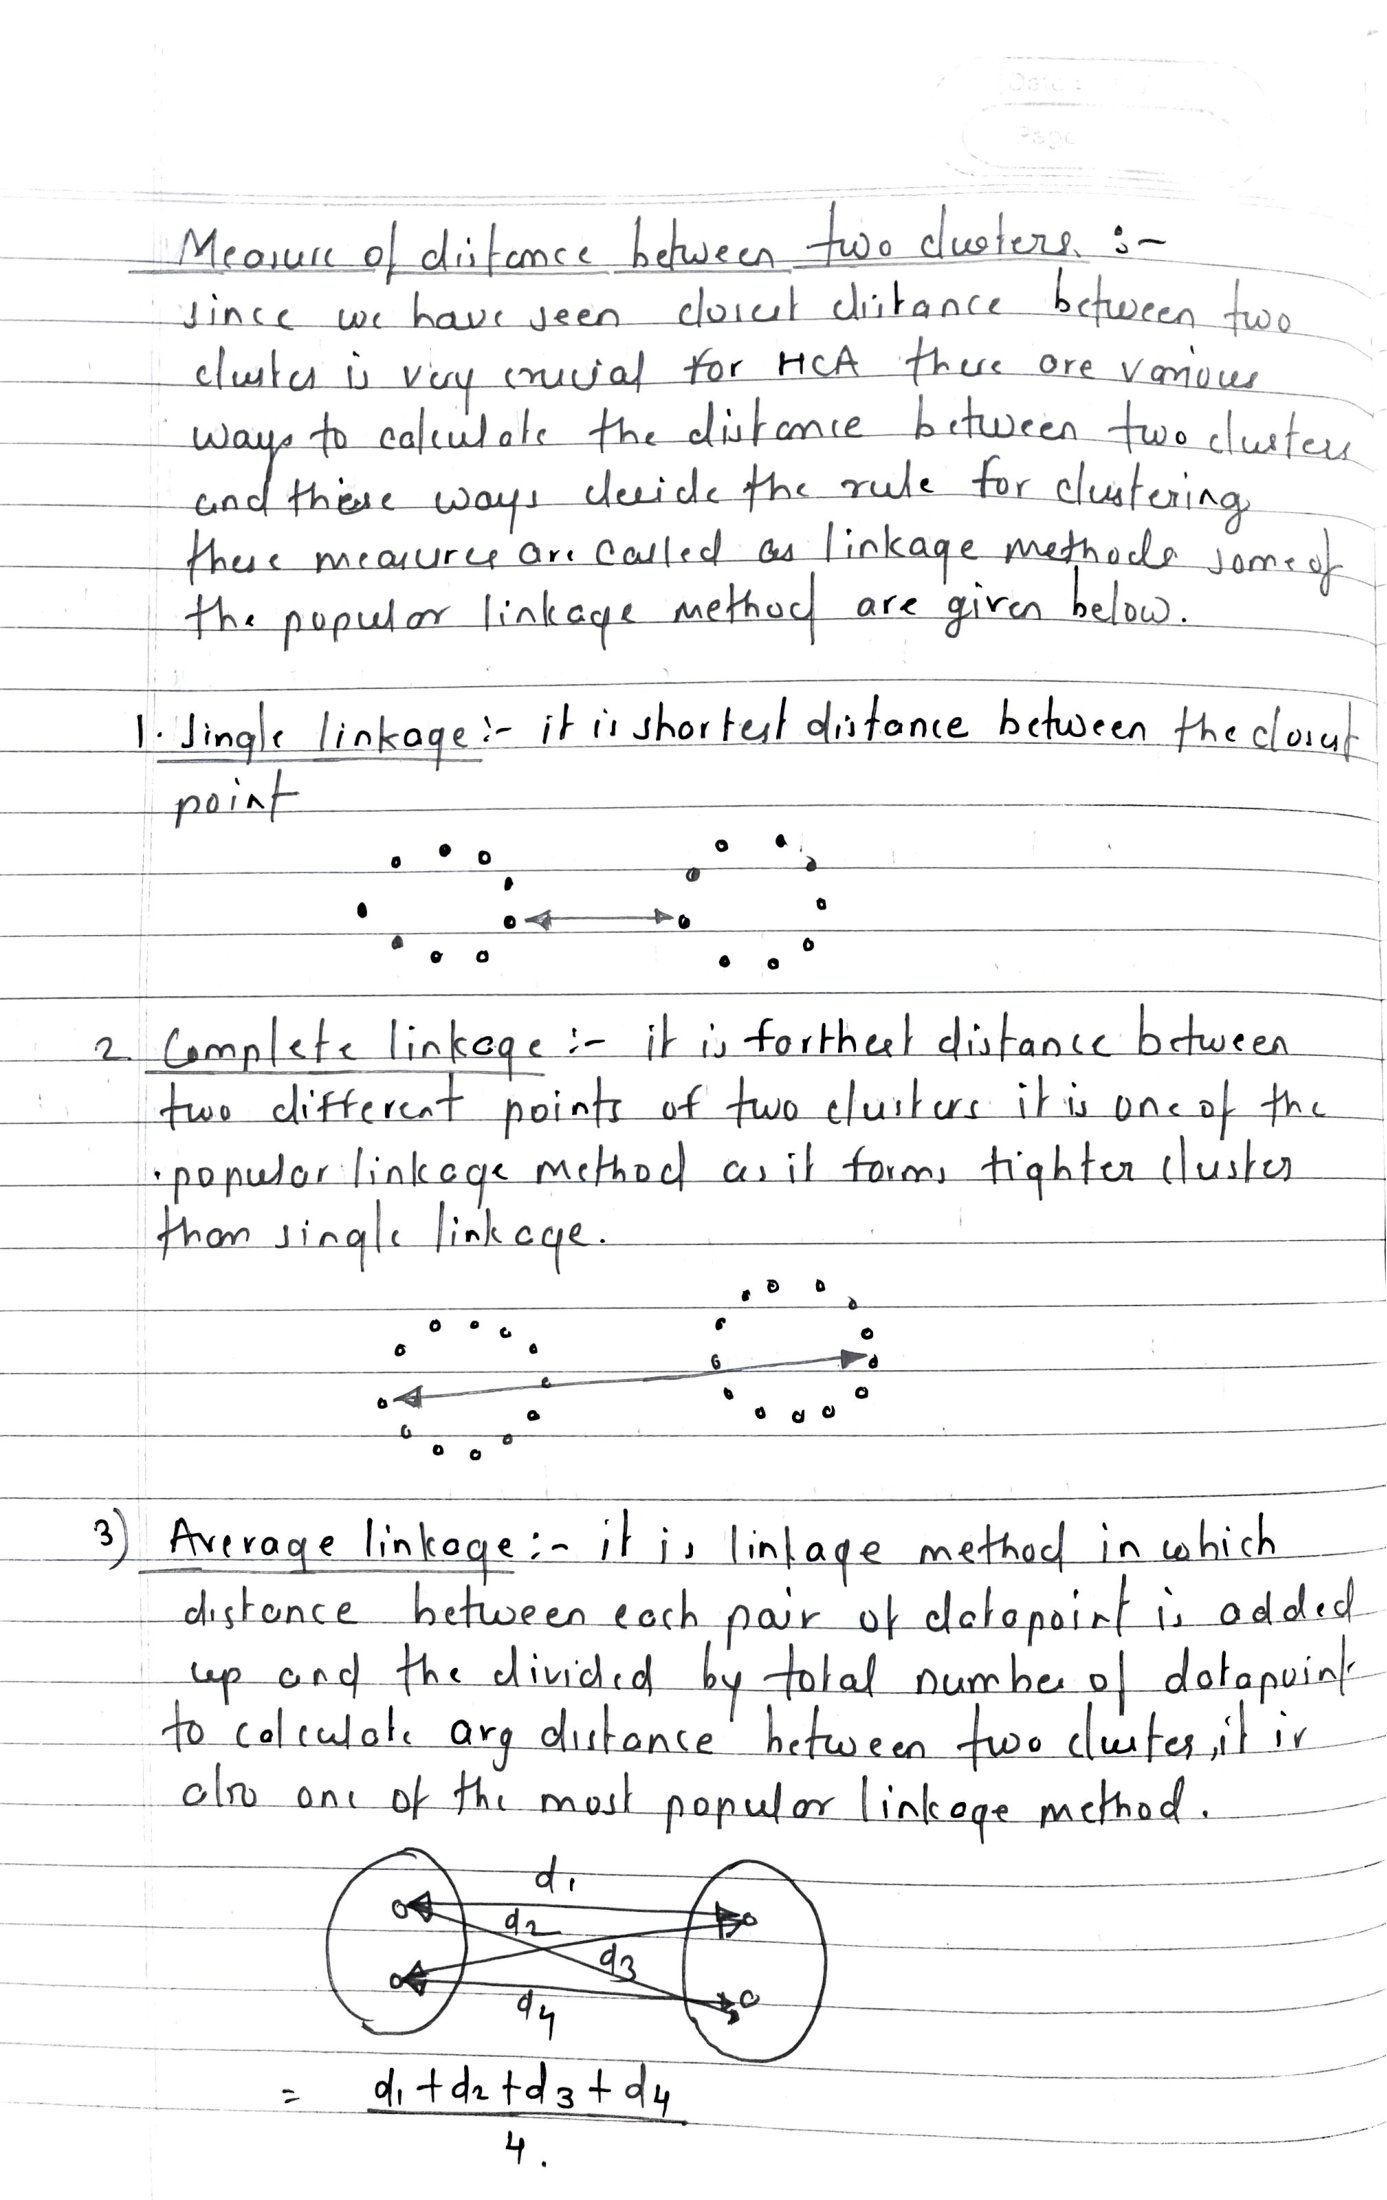 Date :
Page
Measure of distance between two clusters :-
since we have seen closest distance between two
cluster is very crucial for HCA there are various
ways to calculate the distance between two clusters
and these ways decide the rule for clustering
these measures are called as linkage methods some of
the popular linkage method are given below.
1. Single linkage :- it is shortest distance between the closest
point
2. Complete linkage :- it is forthest distance between
two different points of two clusters it is one of the
popular linkage method as it forms tighter cluster
than single linkage.
3) Average linkage :- it is linkage method in which
distance between each pair of datapoint is added
up and the divided by total number of datapoint
to calculate avg distance between two cluster, it is
also one of the most popular linkage method.
d1
d2
d3
d4
= d1 + d2 + d3 + d4
4.